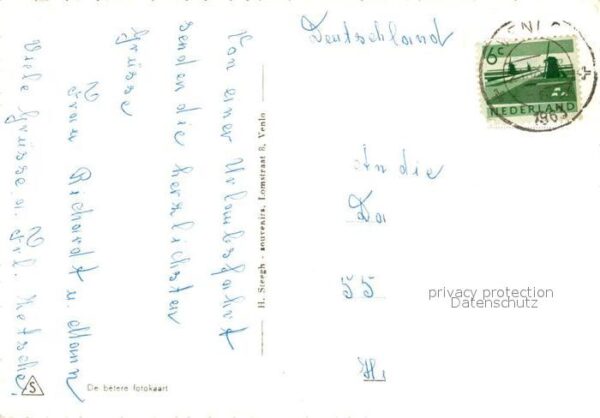 Von einer Urlaubsfahrt
senden die herzlichsten
Grüsse
Frau Richardt u. Mann
Viele Grüsse a. Frl.
H. Steegh - souvenirs, Lomstraat 8, Venlo
De betere fotokaart
S
Deutschland
6c
NEDERLAND
1965
An die
Da
55
Hi
privacy protection
Datenschutz